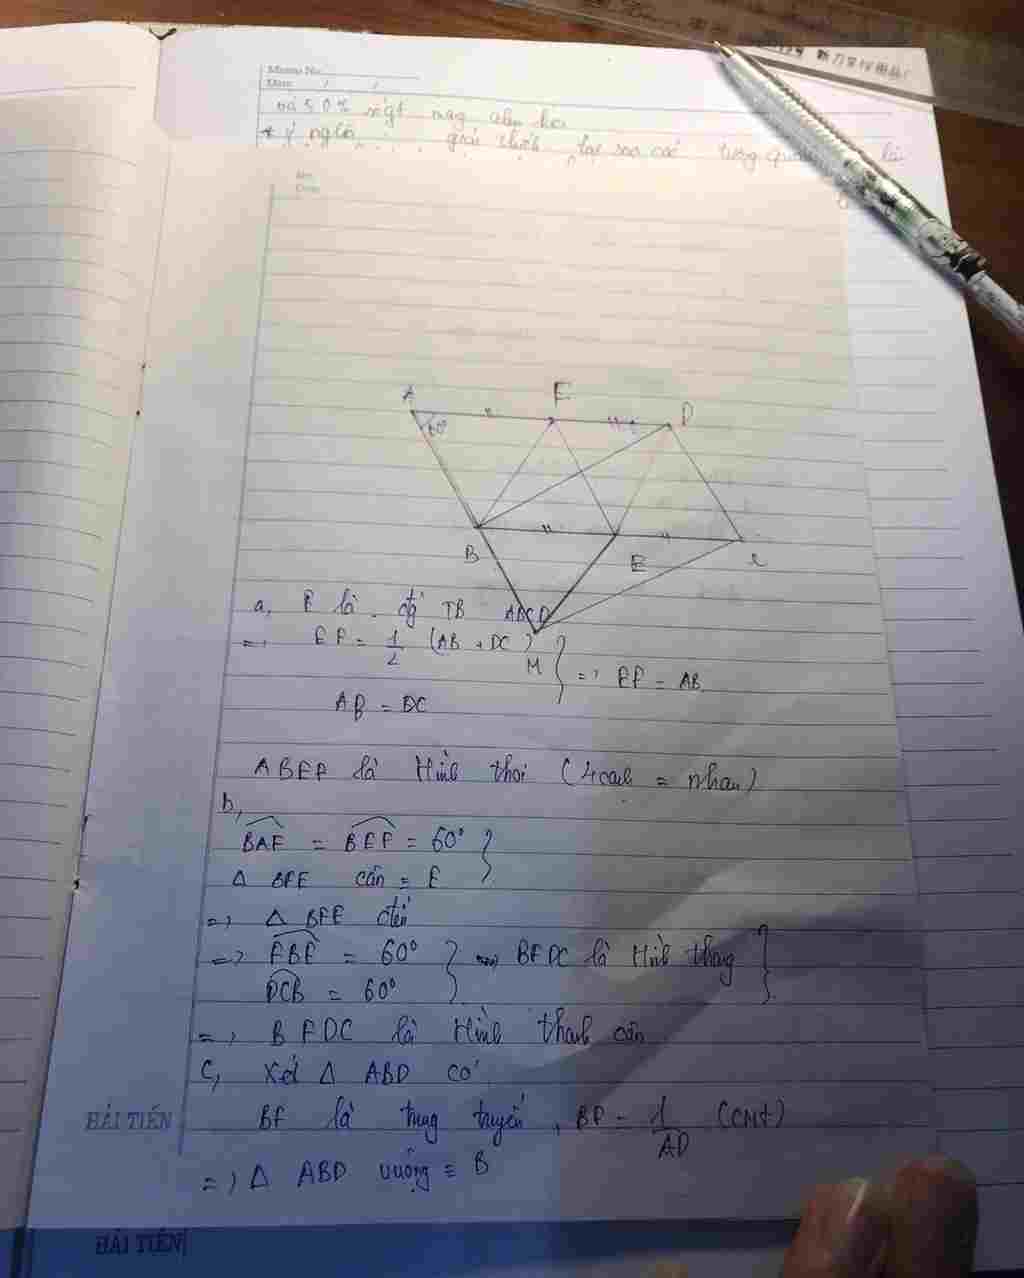 Memo No.
Date / /
và 50%
* ý nghĩa giải thích tại sao các tương quan
No.
Date
A F D
60°
B E C
a, F là đg TB ABCD
=> EF = 1/2 (AB + DC)
M
=> EF = AB
AB = DC
ABEF là Hình thoi (4 cạnh = nhau)
b,
BAF = BEF = 60°
Δ BFE cân = E
=> Δ BFE đều
=> FBE = 60° => BFDC là Hình thang
DCB = 60°
=> BFDC là Hình thanh cân
C, Xét Δ ABD có
BF là trung tuyến, BF = 1/AD (CMt)
=> Δ ABD vuông = B
HẢI TIẾN
HẢI TIẾN